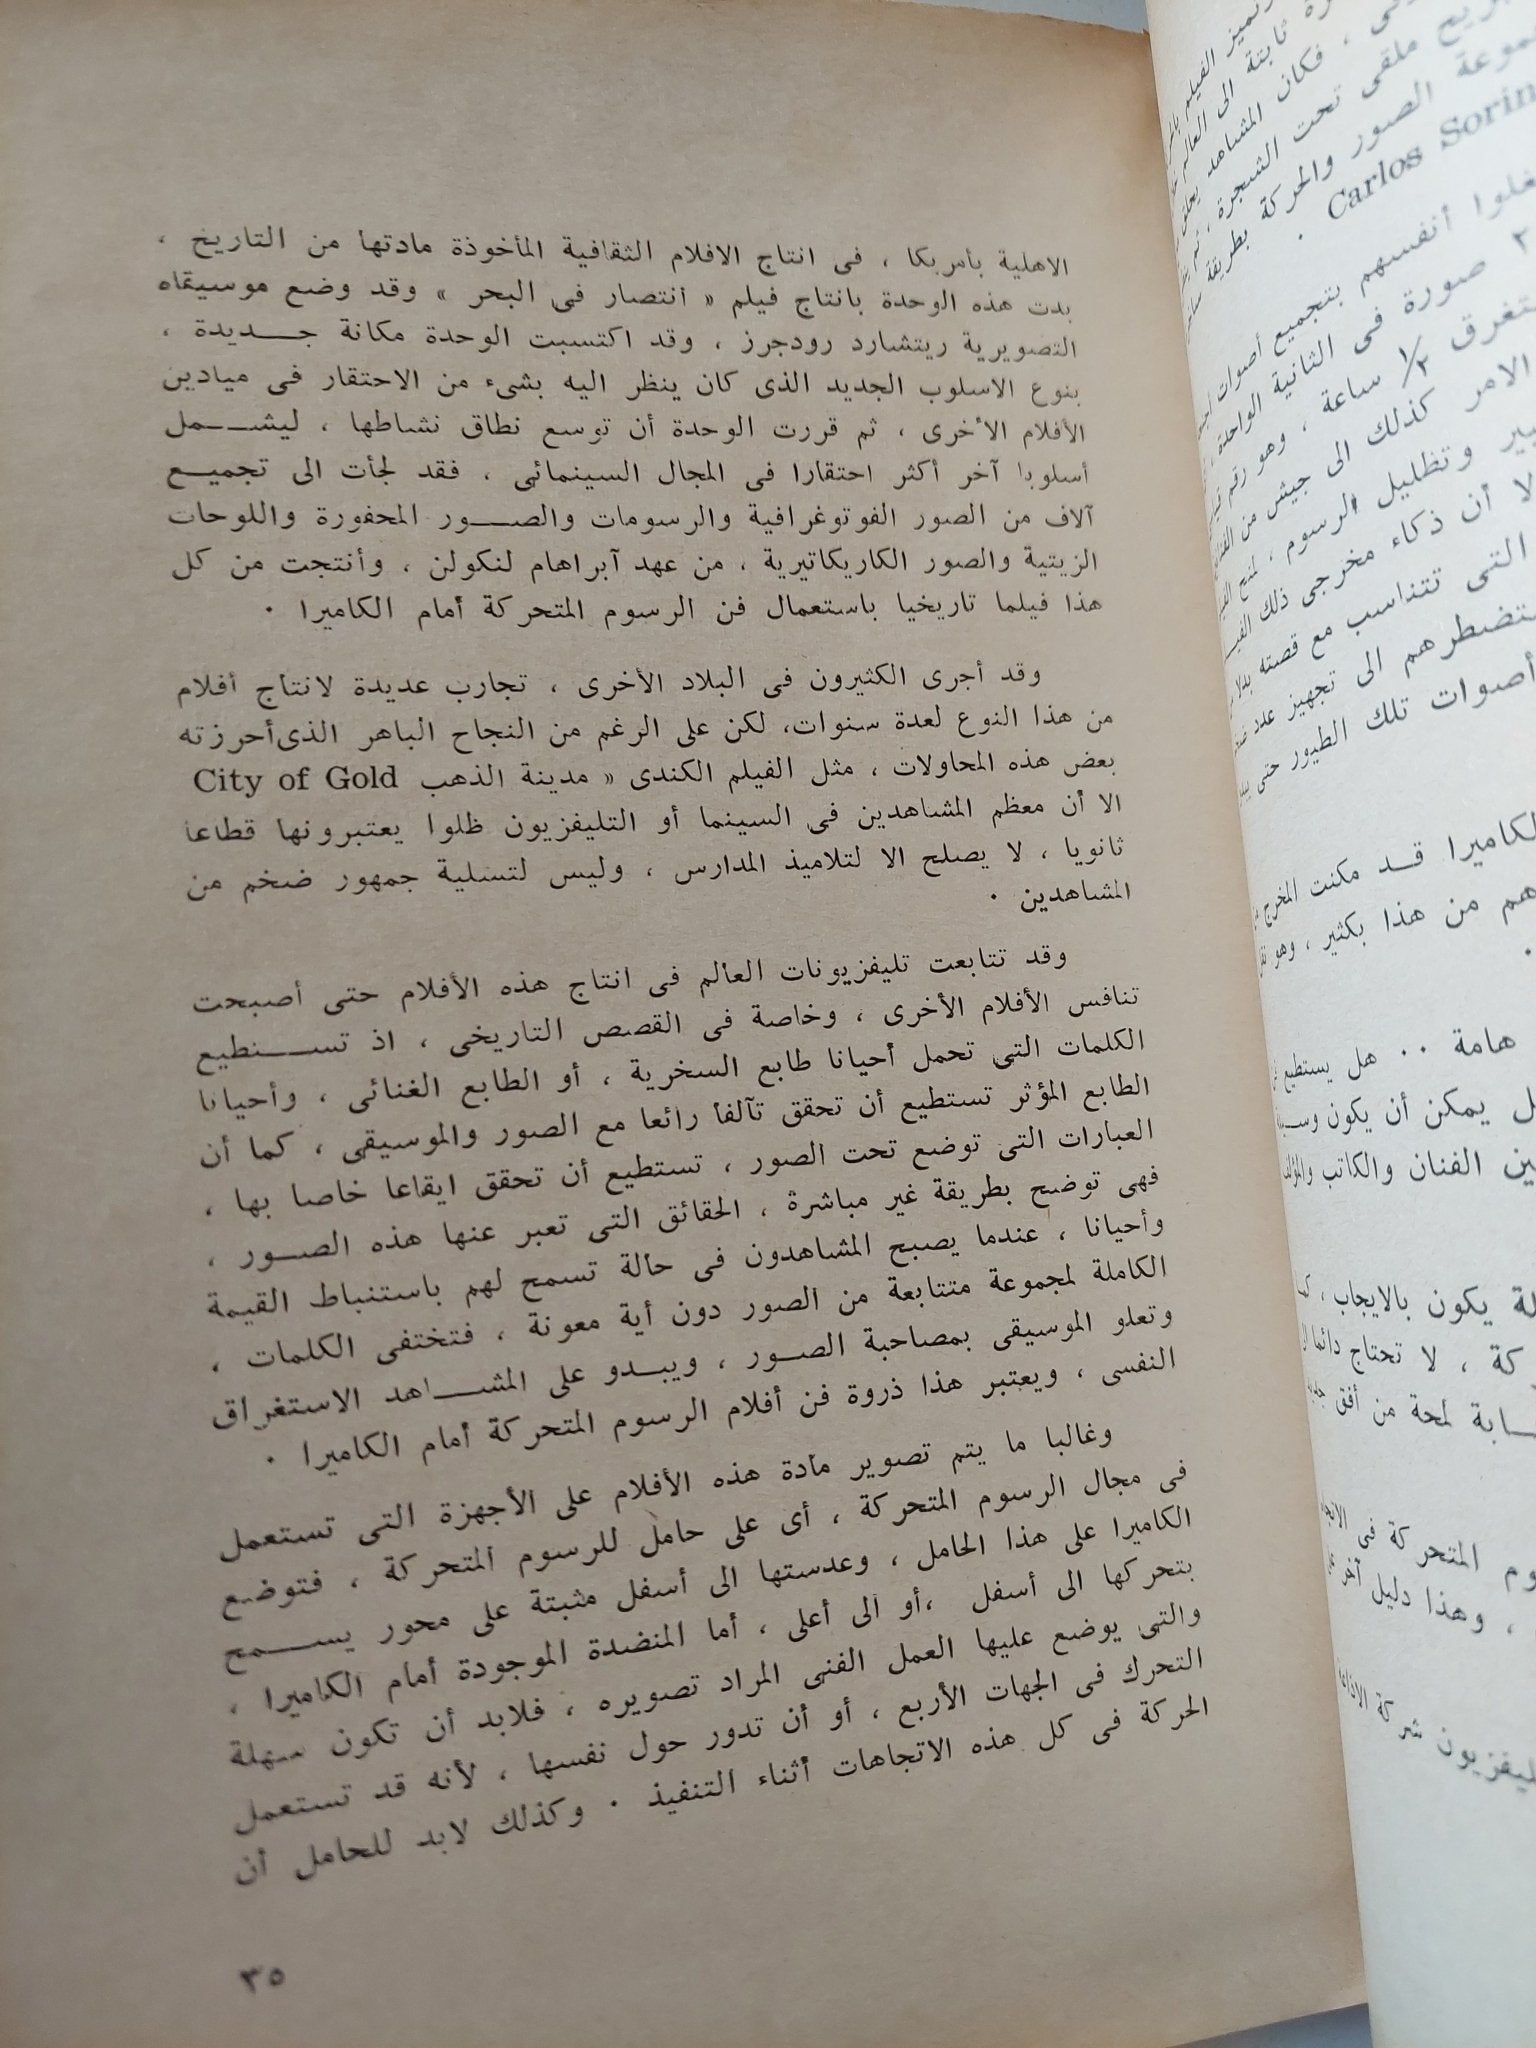 الاهلية بأمريكا ، فى انتاج الافلام الثقافية المأخوذة مادتها من التاريخ ،
بدت هذه الوحدة بانتاج فيلم « انتصار فى البحر » وقد وضع موسيقاه
التصويرية ريتشارد رودجرز ، وقد اكتسبت الوحدة مكانة جـــديدة ،
بنوع الاسلوب الجديد الذى كان ينظر اليه بشىء من الاحتقار فى ميادين
الأفلام الأخرى ، ثم قررت الوحدة أن توسع نطاق نشاطها ، ليشـــمل
أسلوبا آخر أكثر احتقارا فى المجال السينمائى ، فقد لجأت الى تجميــع
آلاف من الصور الفوتوغرافية والرسومات والصـــور المحفورة واللوحات
الزيتية والصور الكاريكاتيرية ، من عهد آبراهام لنكولن ، وأنتجت من كل
هذا فيلما تاريخيا باستعمال فن الرسوم المتحركة أمام الكاميرا ٠
وقد أجرى الكثيرون فى البلاد الأخرى ، تجارب عديدة لانتاج أفلام
من هذا النوع لعدة سنوات، لكن على الرغم من النجاح الباهر الذى أحرزته
بعض هذه المحاولات ، مثل الفيلم الكندى « مدينة الذهب City of Gold
الا أن معظم المشاهدين فى السينما أو التليفزيون ظلوا يعتبرونها قطاعا
ثانويا ، لا يصلح الا لتلاميذ المدارس ، وليس لتسلية جمهور ضخم من
المشاهدين ٠
وقد تتابعت تليفزيونات العالم فى انتاج هذه الأفلام حتى أصبحت
تنافس الأفلام الأخرى ، وخاصة فى القصص التاريخى ، اذ تســـتطيع
الكلمات التى تحمل أحيانا طابع السخرية ، أو الطابع الغنائى ، وأحيانا
الطابع المؤثر تستطيع أن تحقق تآلفا رائعا مع الصور والموسيقى ، كما أن
العبارات التى توضع تحت الصور ، تستطيع أن تحقق ايقاعا خاصا بها ،
فهى توضح بطريقة غير مباشرة ، الحقائق التى تعبر عنها هذه الصــور ،
وأحيانا ، عندما يصبح المشاهدون فى حالة تسمح لهم باستنباط القيمة
الكاملة لمجموعة متتابعة من الصور دون أية معونة ، فتختفى الكلمات ،
وتعلو الموسيقى بمصاحبة الصــور ، ويبــدو على المشـــاهد الاستغراق
النفسى ، ويعتبر هذا ذروة فن أفلام الرسوم المتحركة أمام الكاميرا ٠
وغالبا ما يتم تصوير مادة هذه الأفلام على الأجهزة التى تستعمل
فى مجال الرسوم المتحركة ، أى على حامل للرسوم المتحركة ، فتوضع
الكاميرا على هذا الحامل ، وعدستها الى أسفل مثبتة على محور يســـمح
بتحركها الى أسفل ،أو الى أعلى ، أما المنضدة الموجودة أمام الكاميرا ،
والتى يوضع عليها العمل الفنى المراد تصويره ، فلابد أن تكون سهلة
التحرك فى الجهات الأربع ، أو أن تدور حول نفسها ، لأنه قد تستعمل
الحركة فى كل هذه الاتجاهات أثناء التنفيذ ٠ وكذلك لابد للحامل أن
٣٥
ملقى تحت الشجرة ،
الصور والحركة بطريقة
Carlos Sorin
أنفسهم بتجميع أصوات
٢ صورة فى الثانية الواحدة
١/٢ ساعة ، وهو رقم
الامر كذلك الى جيش من
وتظليل الرسوم ،
لا أن ذكاء مخرجى ذلك
التى تتناسب مع قصته
الى تجهيز عدد
أصوات تلك الطيور حتى
قــد مكنت المخرج
هم من هذا بكثير ، وهو
هامة ٠٠ هل يستطيع
يمكن أن يكون
الفنان والكاتب
يكون بالايجاب ،
لا تحتاج دائما
لمحة من أفق
المتحركة فى
، وهذا دليل آخر
شركة